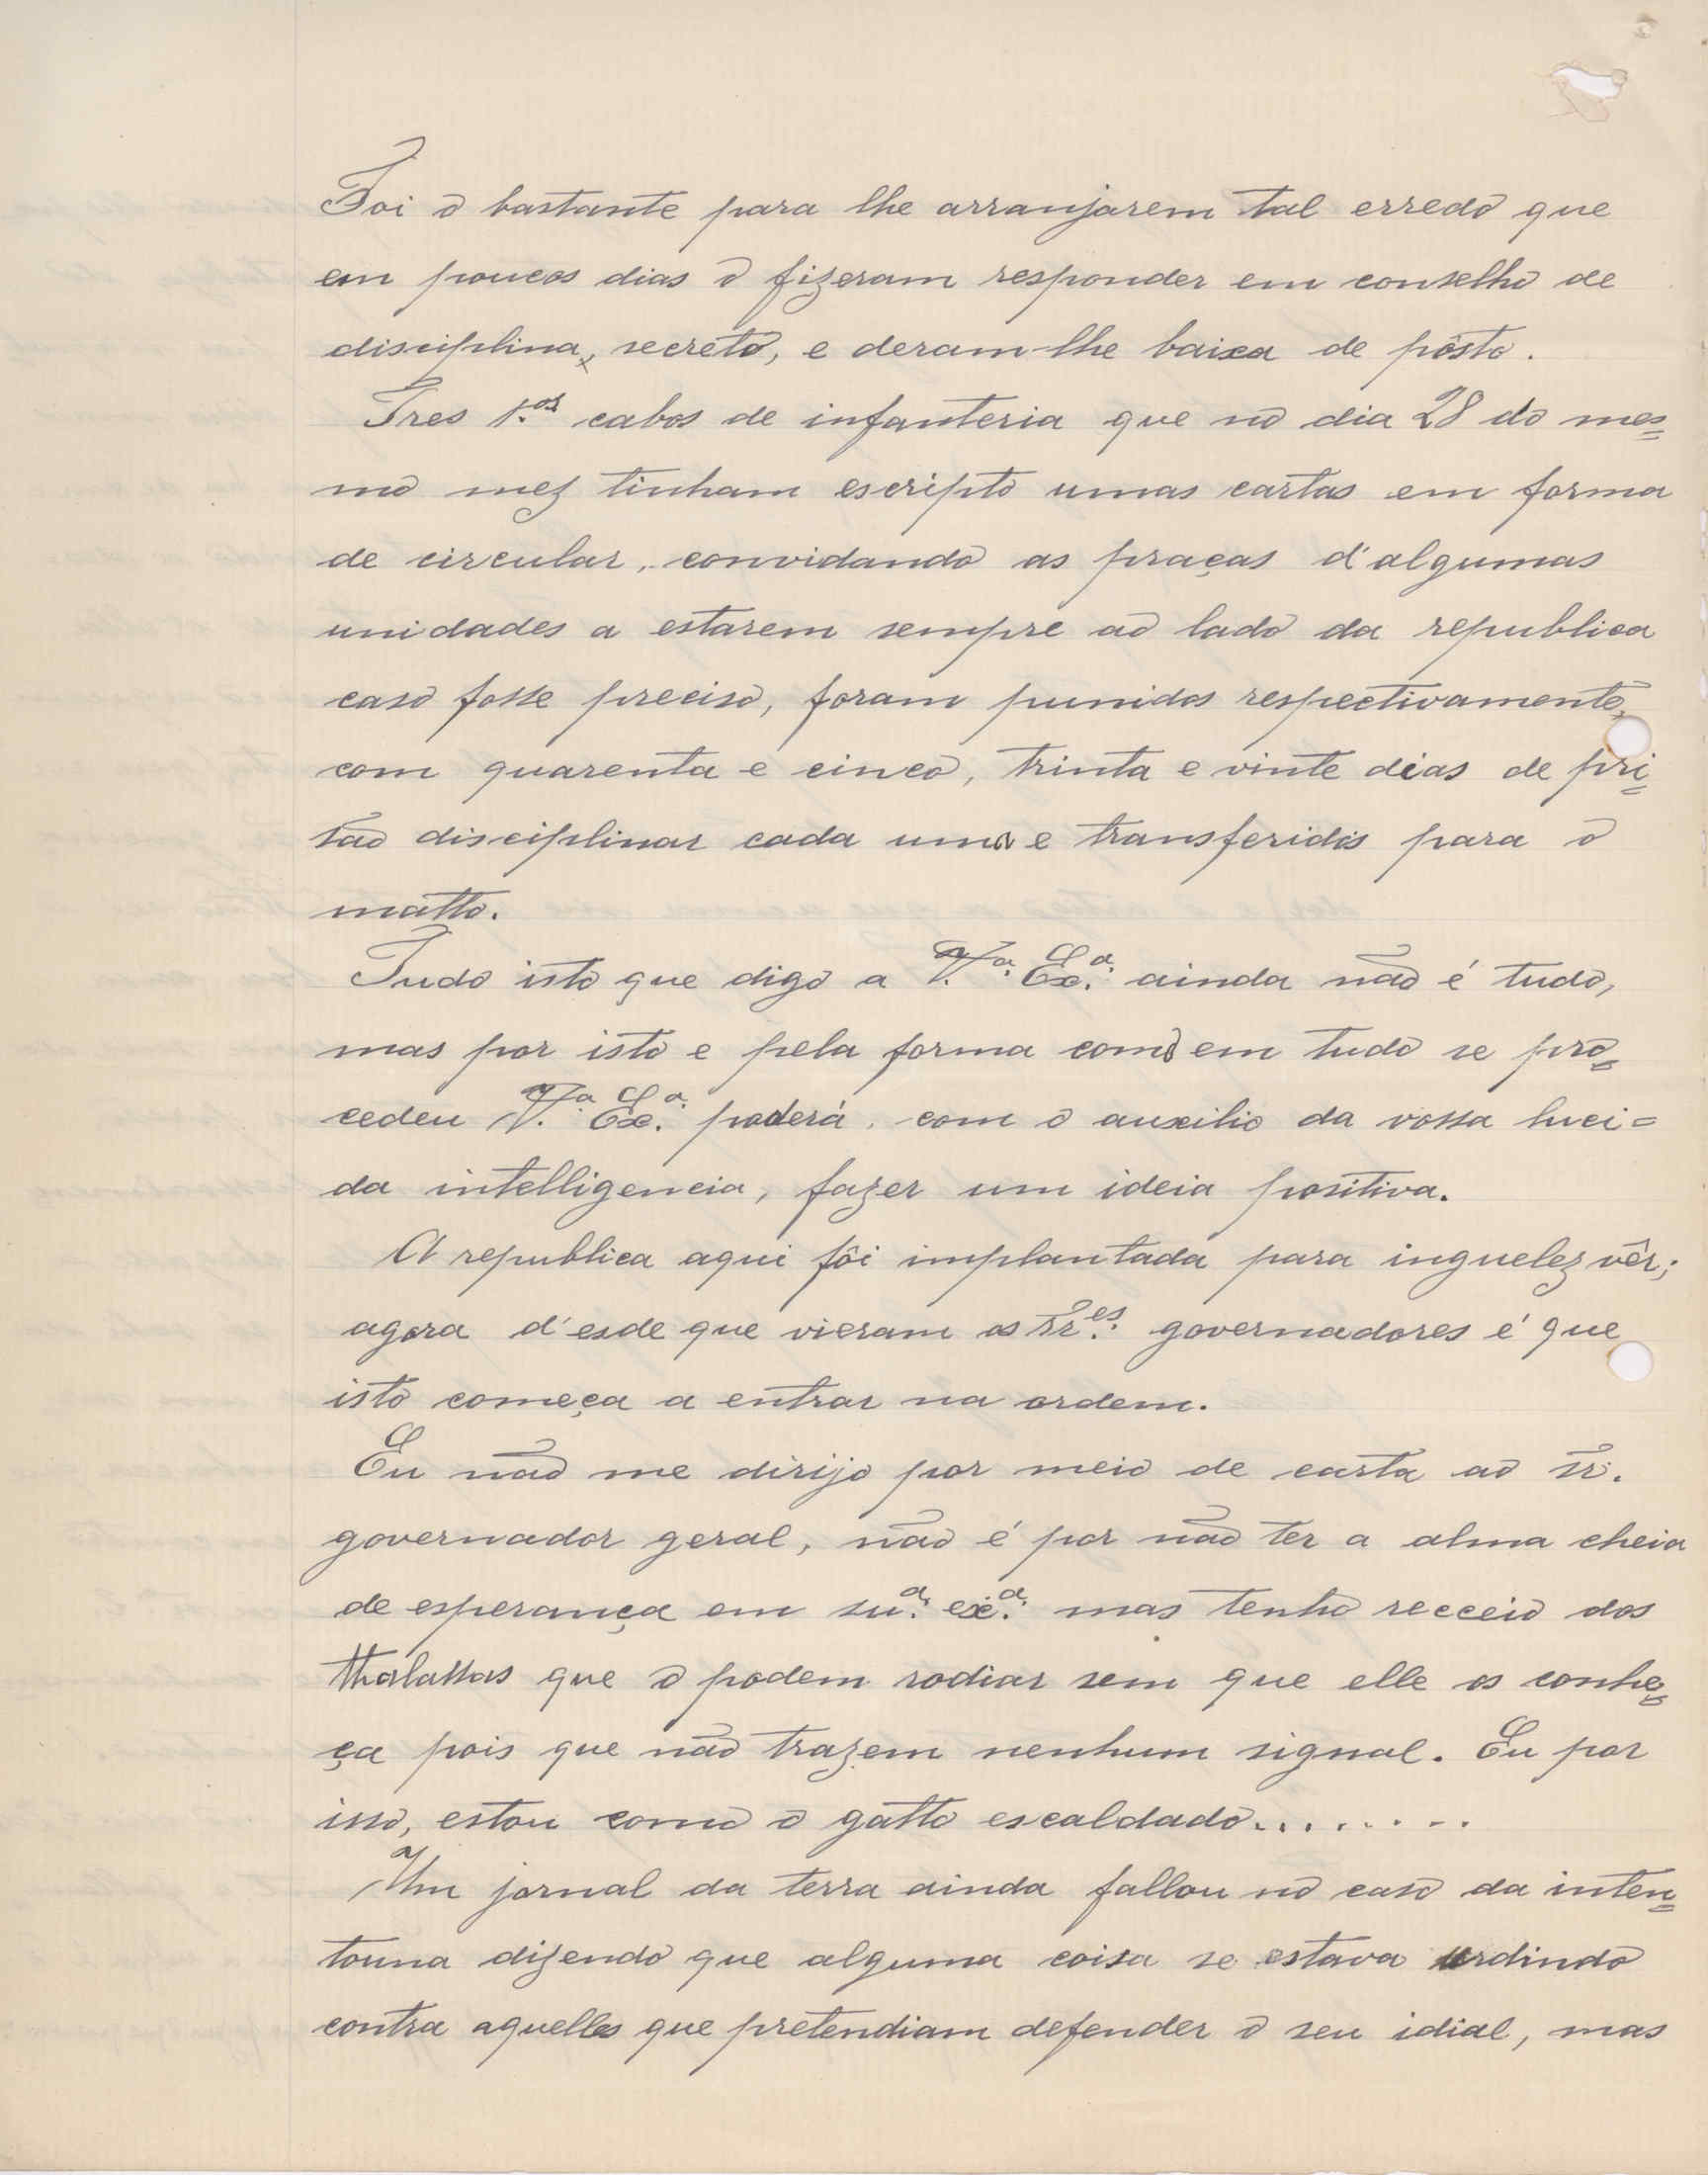 Foi o bastante para lhe arranjarem tal erredo que
em poucos dias o fizeram responder em conselho de
disciplina, secreto, e deram-lhe baixa de pôsto.
Tres 1.os cabos de infanteria que no dia 28 do mes=
mo mez tinham escripto umas cartas em forma
de circular, convidando as praças d'algumas
unidades a estarem sempre ao lado da republica
caso fosse preciso, foram punidos respectivamente,
com quarenta e cinco, trinta e vinte dias de pri=
são disciplinar cada um e transferidos para o
matto.
Tudo isto que digo a V.ª Ex.ª ainda não é tudo,
mas por isto e pela forma como em tudo se pro=
cedeu V.ª Ex.ª poderá, com o auxilio da vossa luci=
da intelligencia, fazer um ideia positiva.
A republica aqui fôi implantada para inguelez vêr;
agora d'esde que vieram os Sr.es governadores é que
isto começa a entrar na ordem.
Eu não me dirijo por meio de carta ao Sr.
governador geral, não é por não ter a alma cheia
de esperança em su.ª ex.ª mas tenho receeio dos
thalassas que o podem rodiar sem que elle os conhe=
ça pois que não trazem nenhum signal. Eu por
isso, estou como o gatto escaldado........
Um jornal da terra ainda fallou no caso da inten=
touna dizendo que alguma coisa se estava urdindo
contra aquelles que pretendiam defender o seu idial, mas